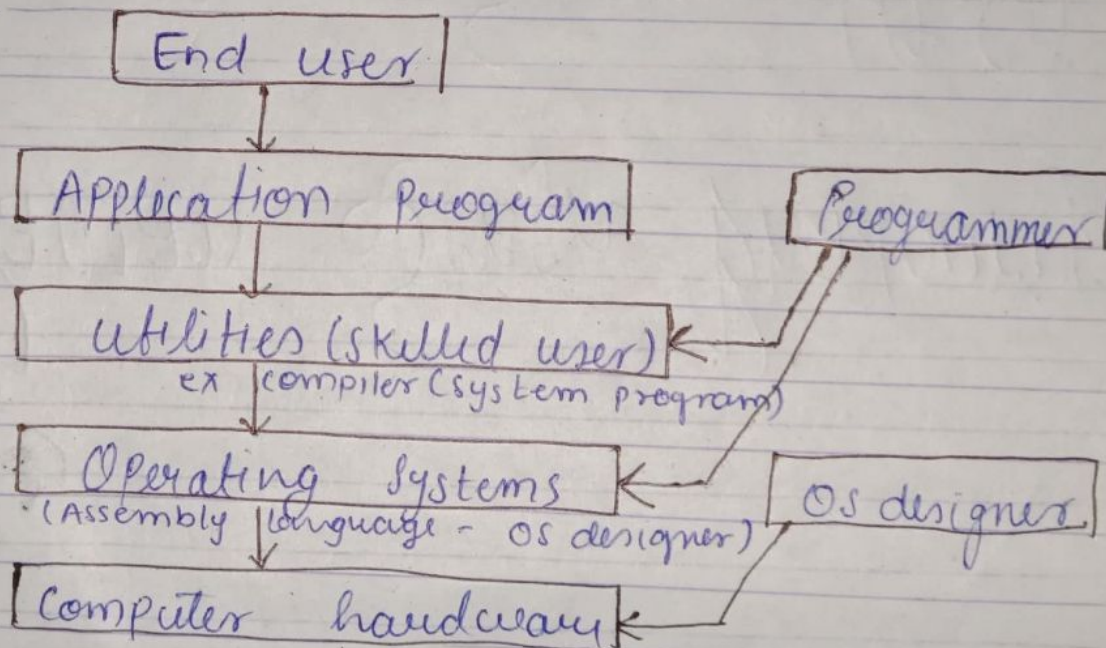 End user
Application program
Programmer
Utilities (skilled user)
ex compiler (system program)
Operating systems
(Assembly language - OS designer)
OS designer
Computer hardware